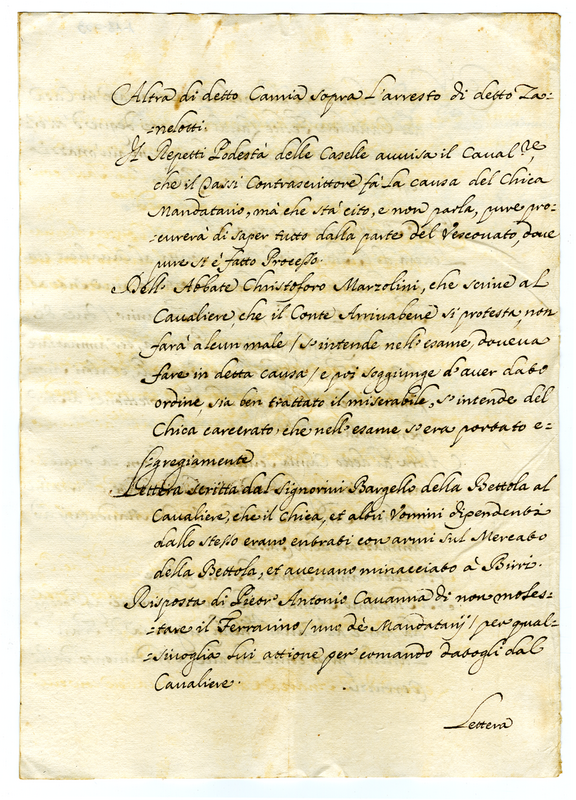 Altra di detto Cavria sopra l'arresto di detto Za=
=nelotti.
Il Repetti Podestà delle Caselle auuisa il Caual.re,
che il Passi Contrascrittore fà la causa del Chica
Mandatario, mà che stà cito, e non parla, pure pro=
=curerà di saper tutto dalla parte del Vescouato, doue
pure si è fatto Processo.
Dell'Abbate Christoforo Marzolini, che scriue al
Caualiere, che il Conte Arriuabene si protesta, non
farà alcun male / s'intende nell'esame, doueua
fare in detta causa / e poi soggiunge d'auer dato
ordine, sia ben trattato il miserabile, s'intende del
Chica carcerato che nell'esame s'era portato e=
=gregiamente
Lettera scritta dal Signorini Bargello della Bettola al
Caualiere, che il Chica, et altri Vomini dipendenti
dallo stesso erano entrati con armi sul Mercato
della Bettola, et aueuano minacciato à Birri.
Risposta di Pietr'Antonio Cauanna di non moles=
=tare il Ferrauino / uno dè Mandatarij / per qual=
=siuoglia sui attione per comando datogli dal
Caualiere.
Lettera